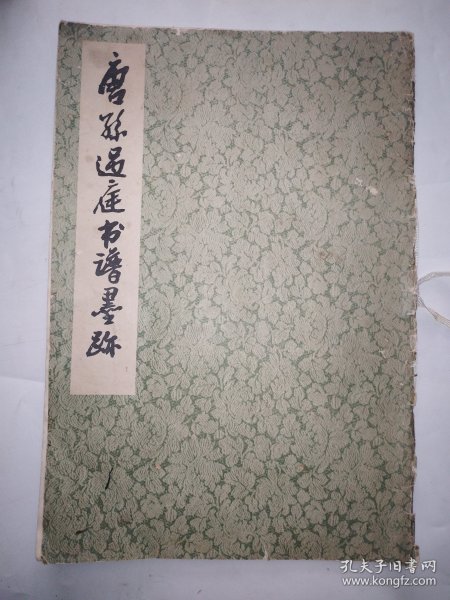 唐孙过庭书谱墨跡
孔夫子旧书网
www.kongfz.com